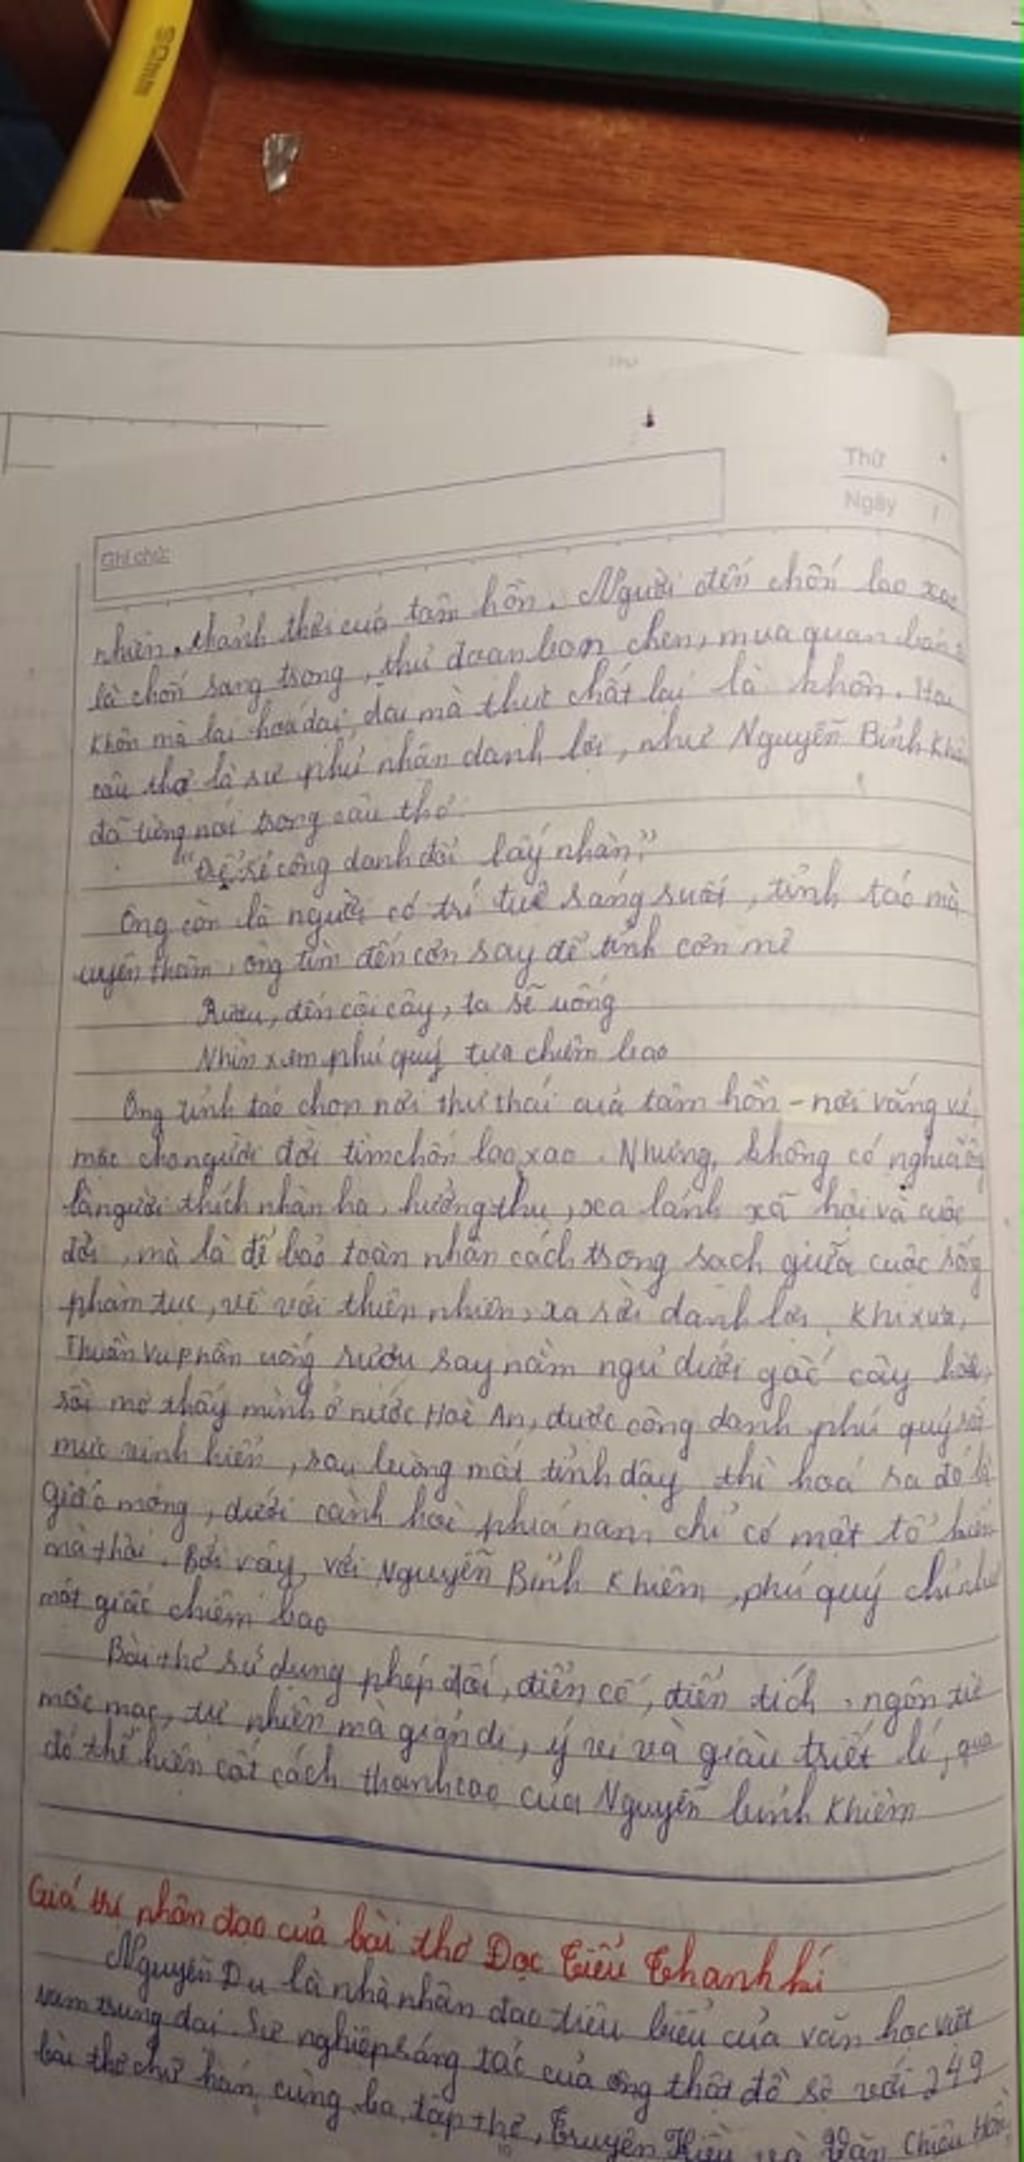 50mm
Thứ
Ngày
Ghi chú:
nhiên, thảnh thơi của tâm hồn. Người đến chốn lao xao
là chốn sang trọng, thủ đoạn bon chen, mua quan bán
khôn mà lại hoá dại, dại mà thực chất lại là khôn. Hai
câu thơ là sự phủ nhận danh lợi, như Nguyễn Bỉnh Khiêm
đã từng nói trong câu thơ:
"Để rẻ công danh đổi lấy nhàn"
Ông còn là người có trí tuệ sáng suốt, tỉnh táo mà
uyên thâm, ông tìm đến cơn say để tỉnh cơn mê
Rượu, đến cội cây, ta sẽ uống
Nhìn xem phú quý tựa chiêm bao
Ông tỉnh táo chọn nơi thư thái của tâm hồn - nơi vắng vẻ,
mặc cho người đời tìm chốn lao xao. Nhưng, không có nghĩa ông
là người thích nhàn hạ, hưởng thụ, xa lánh xã hội và cuộc
đời, mà là để bảo toàn nhân cách trong sạch giữa cuộc sống
phàm tục, về với thiên nhiên, xa rời danh lợi. Khi xưa,
Thuần Vu Phần uống rượu say nằm ngủ dưới gốc cây hòe,
rồi mơ thấy mình ở nước Hoè An, được công danh phú quý rất
mực vinh hiển, sau bừng mắt tỉnh dậy thì hoá ra đó là
giấc mộng, dưới cành hoè phía nam chỉ có một tổ kiến
mà thôi. Bởi vậy, với Nguyễn Bỉnh Khiêm, phú quý chỉ như
một giấc chiêm bao
Bài thơ sử dụng phép đối, điển cố, điển tích, ngôn từ
mộc mạc, tự nhiên mà giản dị, ý vị và giàu triết lí, qua
đó thể hiện cốt cách thanh cao của Nguyễn bỉnh Khiêm
Giá trị nhân đạo của bài thơ Đọc Tiểu Thanh kí
Nguyễn Du là nhà nhân đạo tiêu biểu của văn học việt
nam trung đại. Sự nghiệp sáng tác của ông thật đồ sộ với 249
bài thơ chữ hán, cùng ba tập thơ, Truyện Kiều và Văn Chiêu Hồn